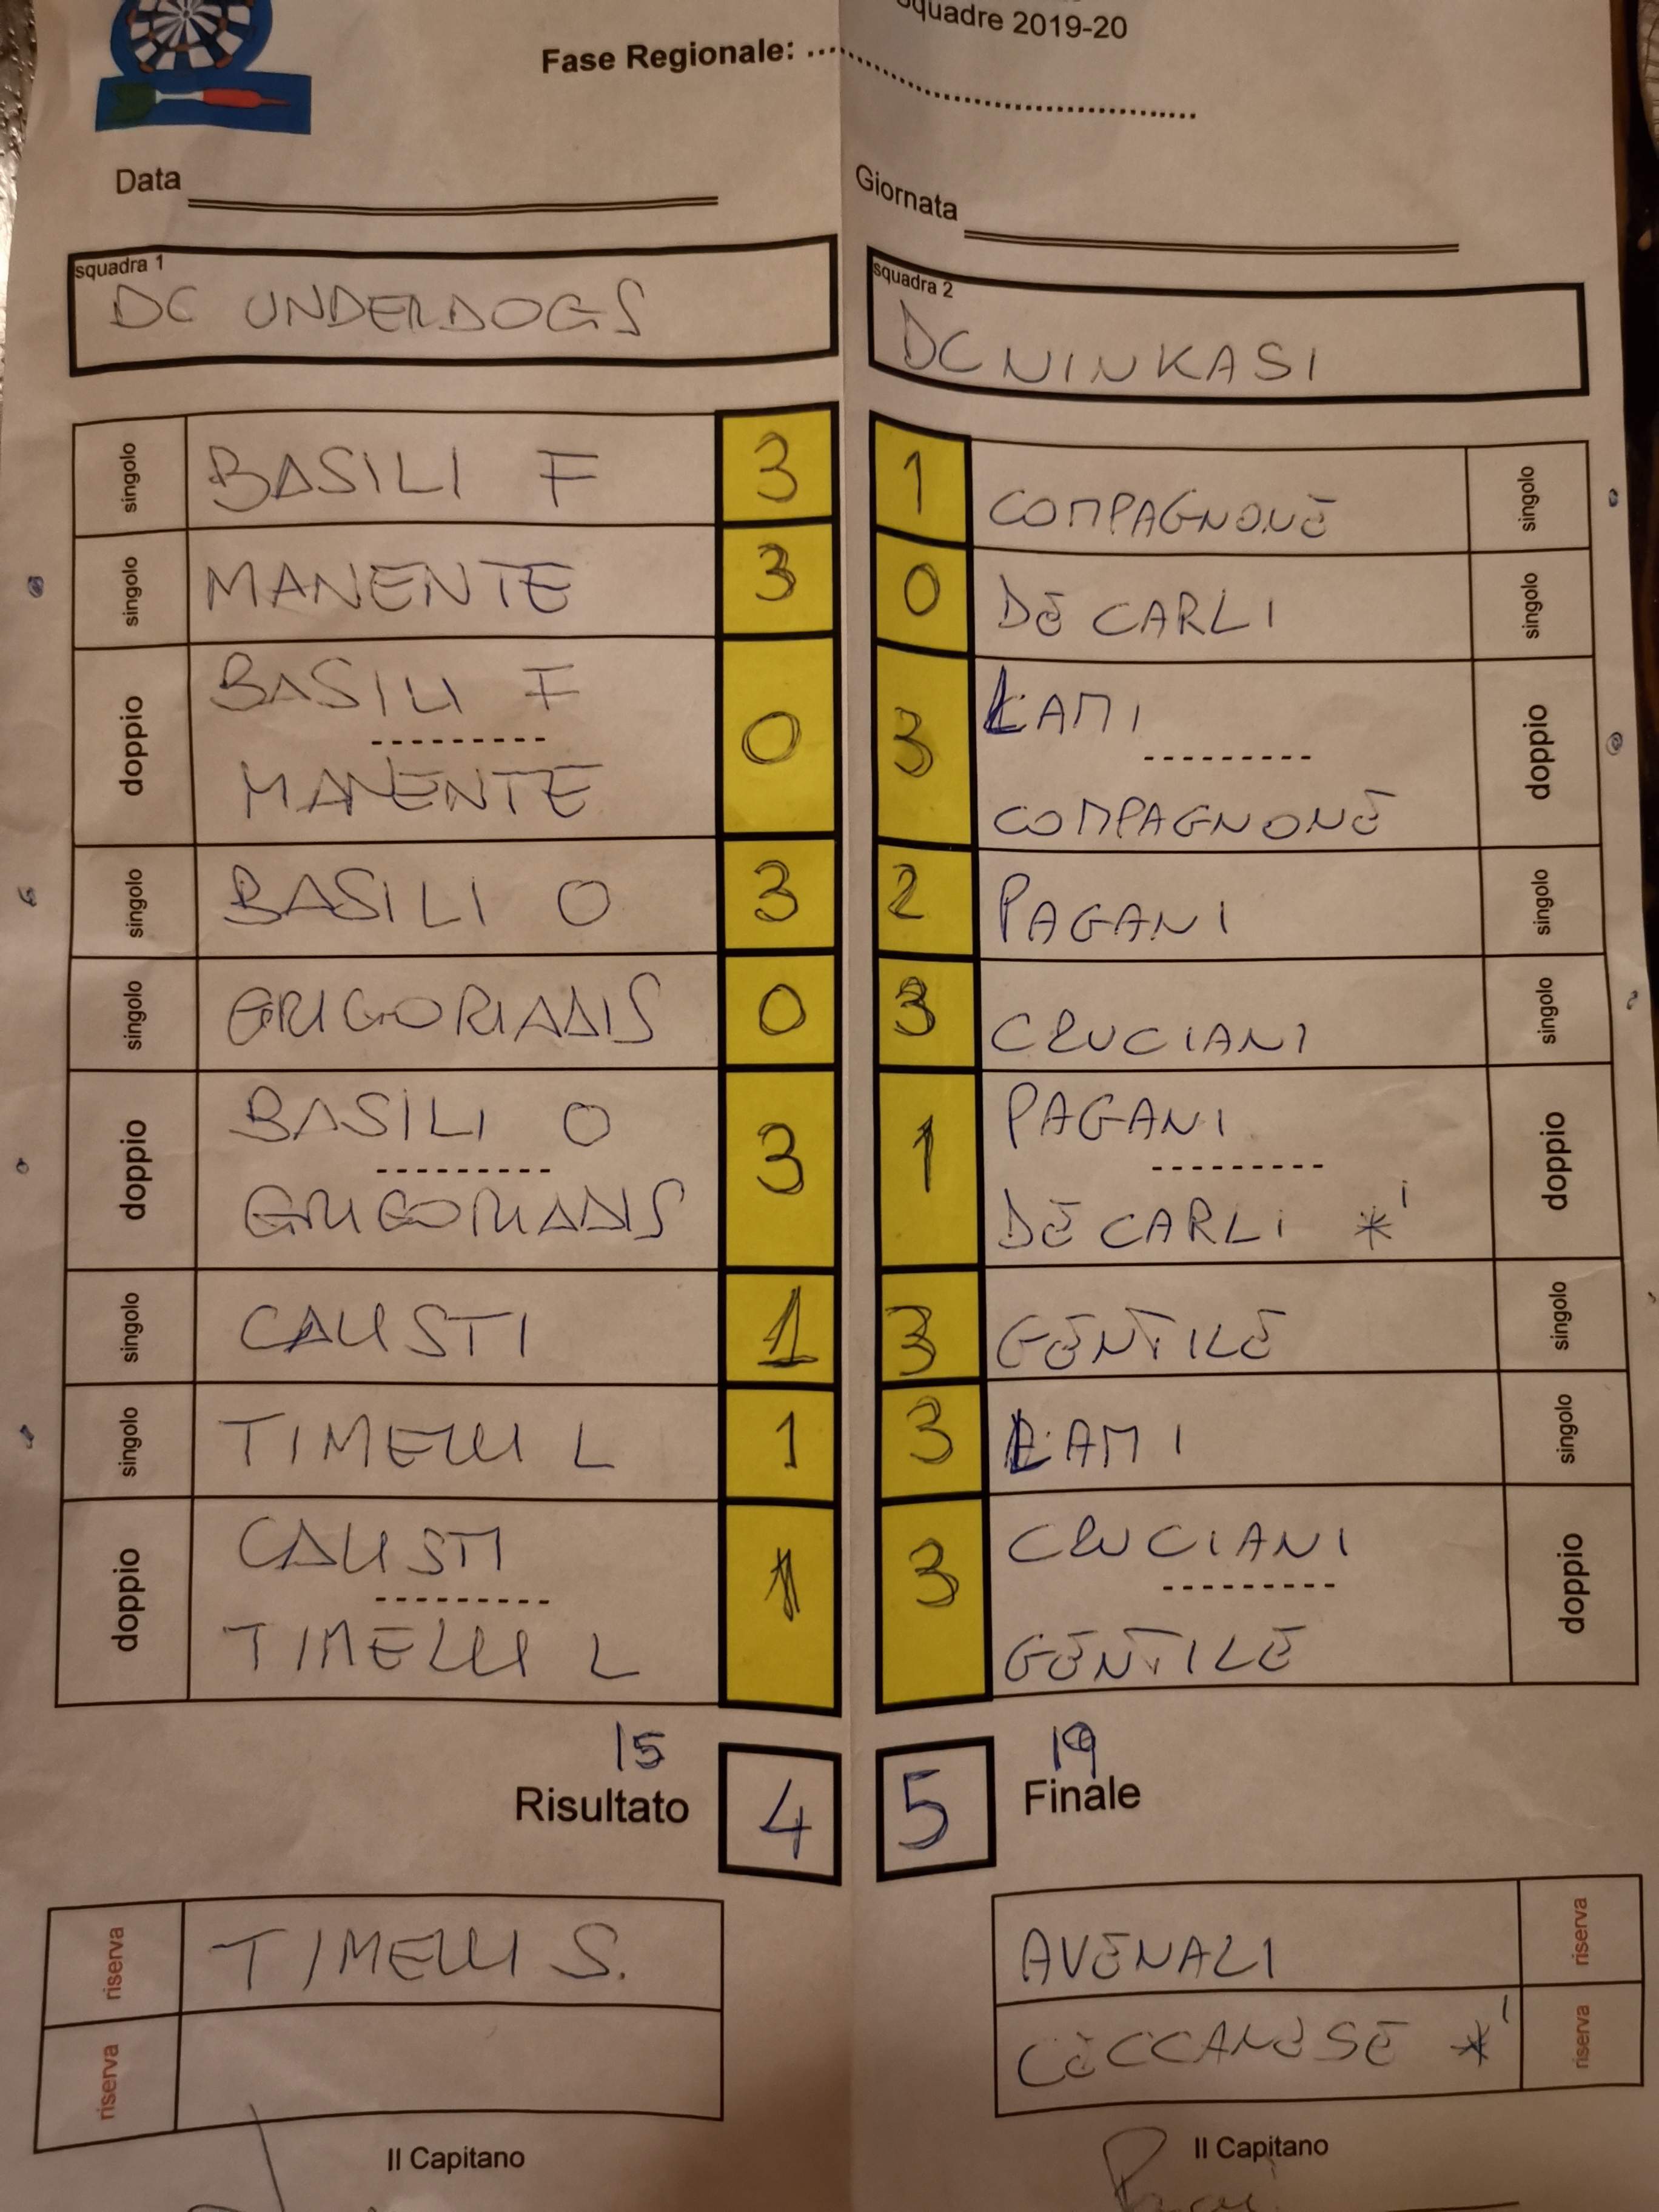 Squadre 2019-20
Fase Regionale:
Data
Giornata
squadra 1
DC UNDERDOGS
squadra 2
DC NINKASI
singolo BASILI F 3 1 COMPAGNONE singolo
singolo MANENTE 3 0 DE CARLI singolo
doppio BASILI F 0 3 LAMI doppio
MANENTE COMPAGNONE
singolo BASILI O 3 2 PAGANI singolo
singolo GRIGORIADIS 0 3 CRUCIANI singolo
doppio BASILI O 3 1 PAGANI doppio
GRIGORIADIS DE CARLI *1
singolo CALISTI 1 3 GENTILE singolo
singolo TIMELLI L 1 3 LAMI singolo
doppio CALISTI 1 3 CRUCIANI doppio
TIMELLI L GENTILE
15 19
Risultato 4 5 Finale
riserva TIMELLI S. AVENALI riserva
riserva CECCANESE *1 riserva
Il Capitano Il Capitano